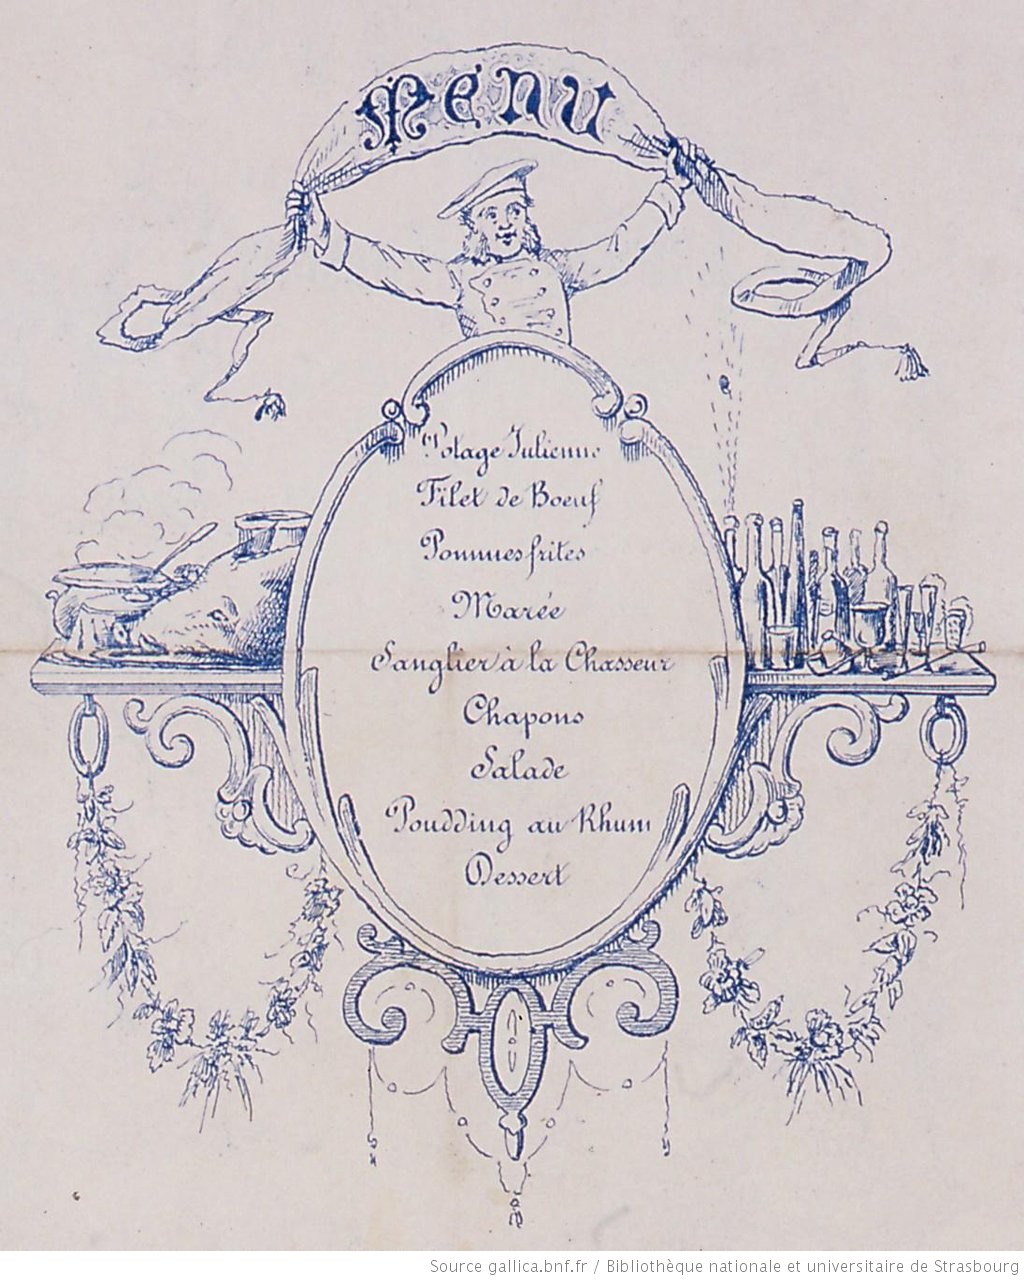 Menu
Potage Julienne
Filet de Boeuf
Pommes frites
Marée
Sanglier à la Chasseur
Chapons
Salade
Poudding au Rhum
Dessert
Source gallica.bnf.fr / Bibliothèque nationale et universitaire de Strasbourg